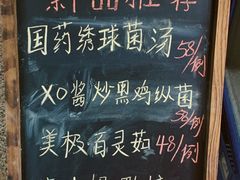 新品推荐
国药绣球菌汤 58/例
XO酱炒黑鸡纵菌 58/例
美极百灵茹 48/例